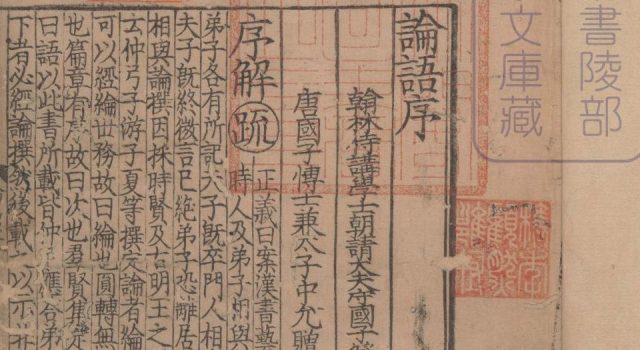 書陵部
文庫藏
論語序
翰林侍講學士朝請大夫守國子祭
唐國子博士兼太子中允贈
序解 疏 正義曰案漢書藝
時人及弟子相與
弟子各有所記夫子既卒門人相
夫子既終微言已絶弟子恐離居
相與論撰因採時賢及古明王之
云仲弓子游子夏等撰定論者綸
可以經綸世務故曰綸也圓轉無
也篇章有序故曰次也羣賢集定
曰語以此書所載皆仲尼應荅弟
下者必經論撰然後載之以示非